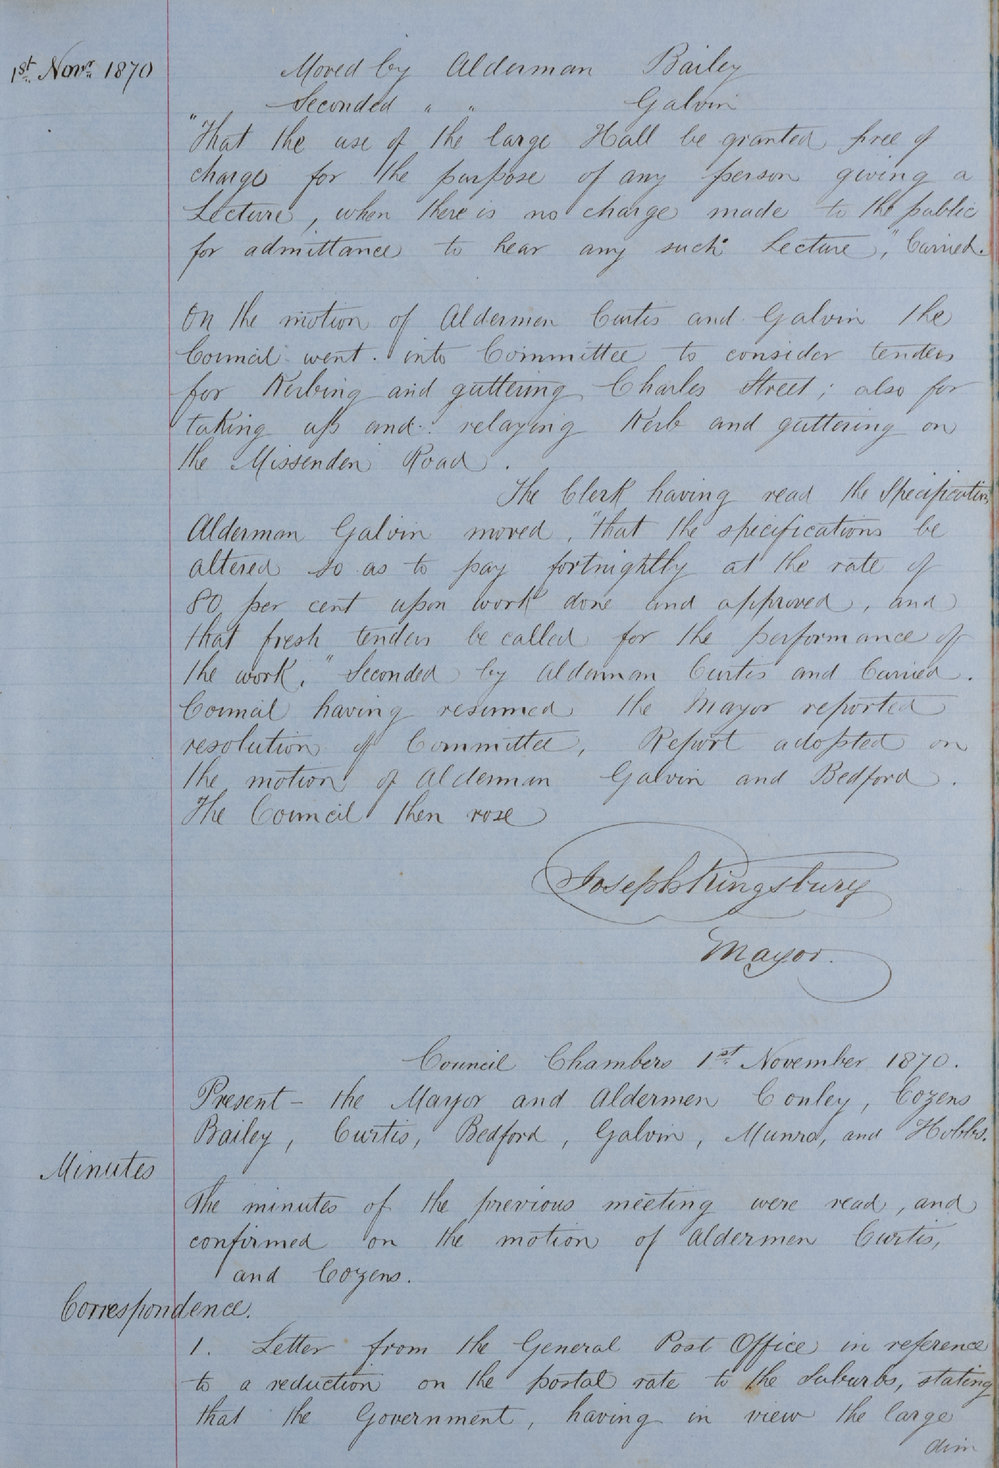 1st Novr 1870
Moved by Alderman Bailey
Seconded " " Galvin
"That the use of the large Hall be granted free of
charge for the purpose of any person giving a
Lecture, when there is no charge made to the public
for admittance to hear any such Lecture", Carried.
On the motion of Aldermen Curtis and Galvin the
Council went into Committee to consider tenders
for Kerbing and guttering Charles Street; also for
taking up and relaying Kerb and guttering on
the Missenden Road.
The Clerk having read the Specification
Alderman Galvin moved, "that the specifications be
altered so as to pay fortnightly at the rate of
80 per cent upon work done and approved, and
that fresh tenders be called for the performance of
the work." Seconded by Alderman Curtis and Carried.
Council having resumed the Mayor reported
resolution of Committee, Report adopted on
the motion of Alderman Galvin and Bedford.
The Council then rose
Joseph Kingsbury
Mayor.
Council Chambers 1st November 1870.
Present - the Mayor and Aldermen Conley, Cozens
Bailey, Curtis, Bedford, Galvin, Munro, and Hobbs.
Minutes
The minutes of the previous meeting were read, and
confirmed on the motion of Aldermen Curtis,
and Cozens.
Correspondence.
1. Letter from the General Post Office in reference
to a reduction on the postal rate to the Suburbs, stating
that the Government, having in view the large
dim